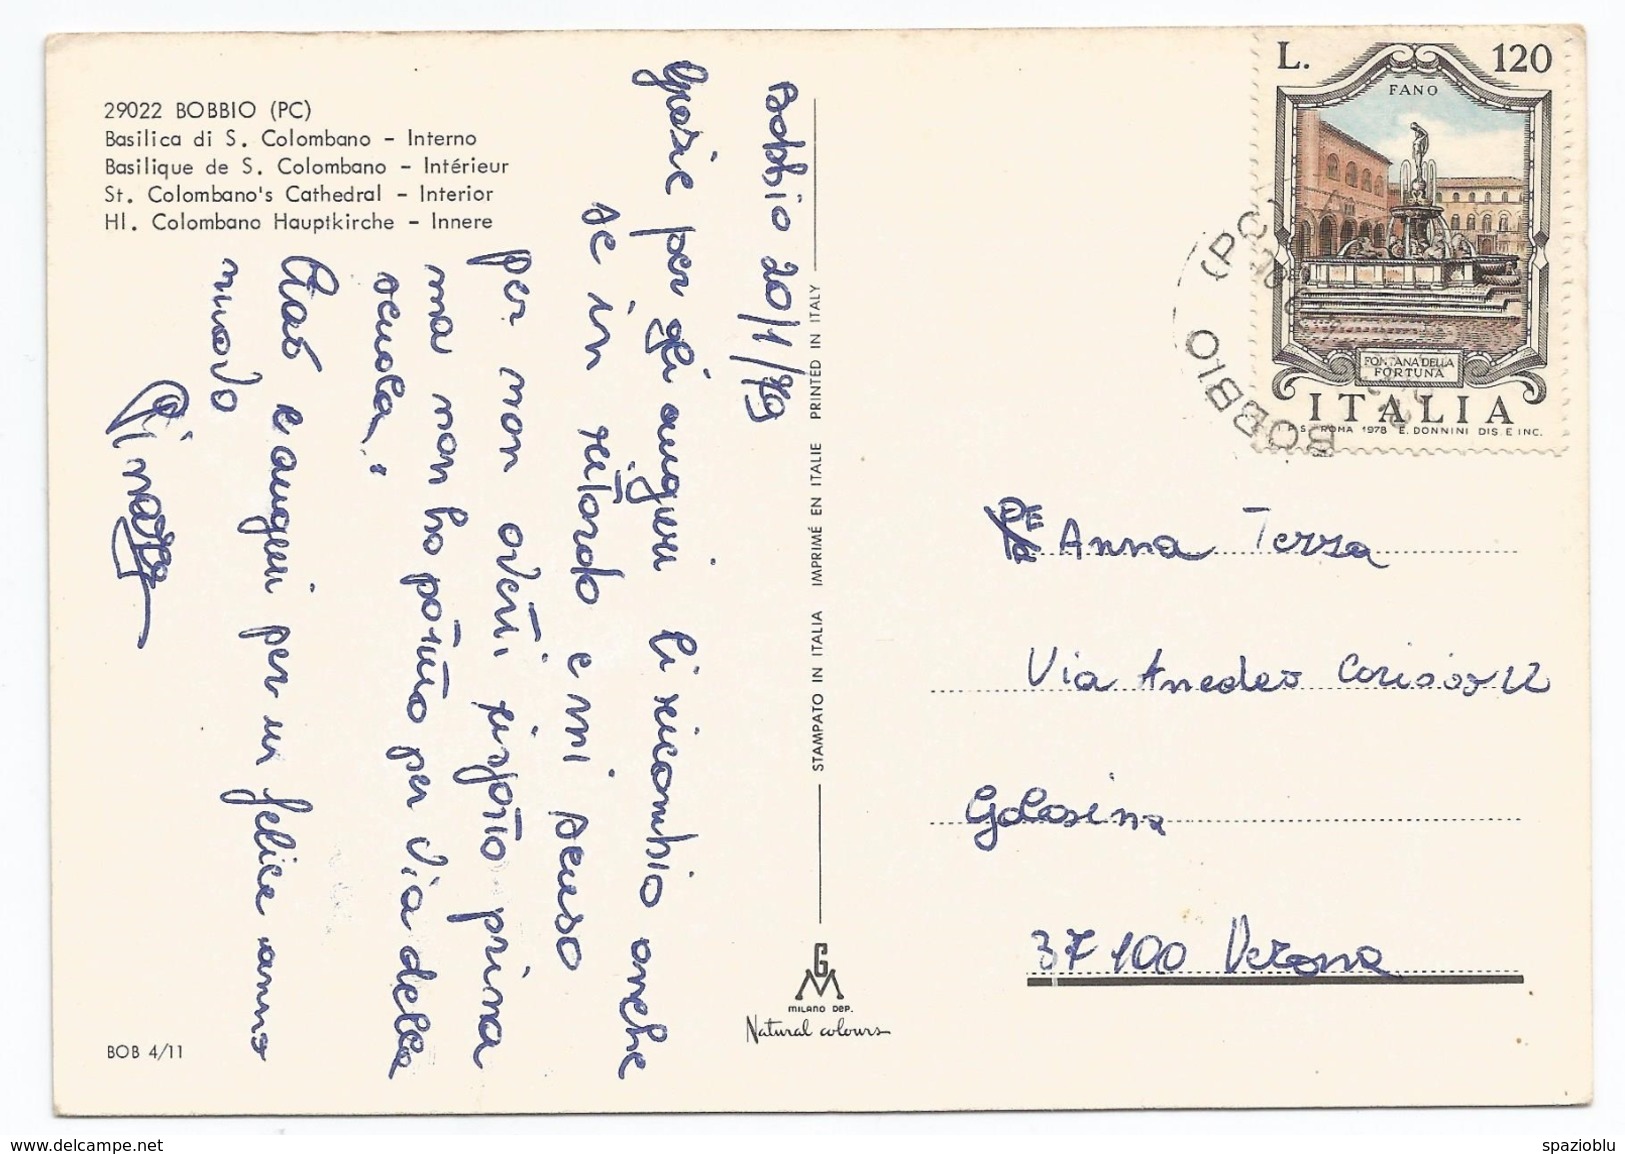 29022 BOBBIO (PC)
Basilica di S. Colombano – Interno
Basilique de S. Colombano – Intérieur
St. Colombano's Cathedral – Interior
Hl. Colombano Hauptkirche – Innere
Bobbio 20/1/79
Grazie per gli auguri li ricambio anche
se in ritardo e mi scuso
per non averti risposto prima
ma non ho potuto per via della
scuola.
Ciao e auguri per un felice anno
nuovo
BOB 4/11
STAMPATO IN ITALIA IMPRIMÉ EN ITALIE PRINTED IN ITALY
GM
MILANO DEP.
Natural colours
L. 120
FANO
FONTANA DELLA
FORTUNA
ITALIA
I.P.S. ROMA 1978 E. DONNINI DIS. E INC.
BOBBIO (PC)
DE Anna Terza
Via Amedeo
Golosine
37100 Verona
www.delcampe.net
spazioblu